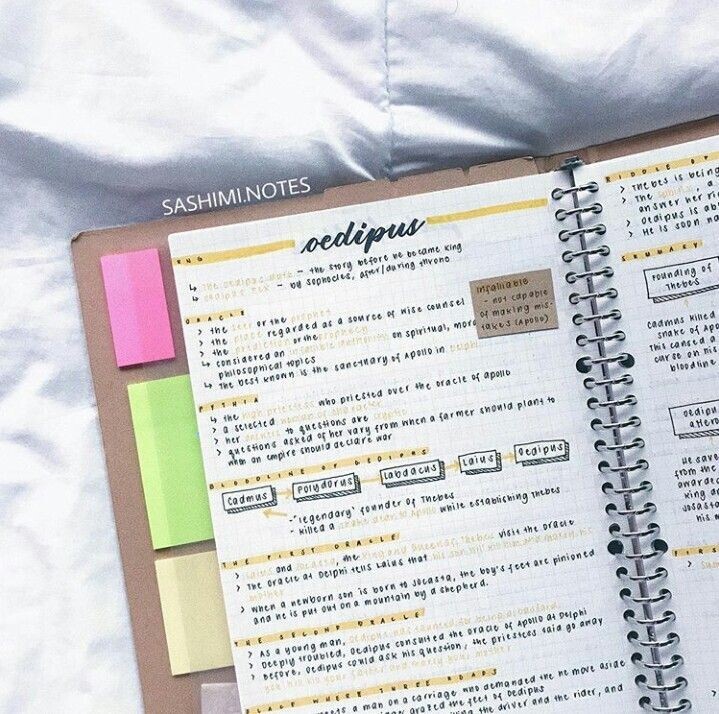 SASHIMI.NOTES
oedipus
ENG
↳ The oedipus myth - the story before he became king
↳ oedipus rex - by sophocles, after/during throne
Infallible
- not capable
of making mis-
takes (Apollo)
ORACLE
> the seer or the prophet
> the place regarded as a source of wise counsel
> the prediction or the prophecy
↳ considered an infallible authority on spiritual, moral
philosophical topics
↳ The best known is the sanctuary of Apollo in Delphi
PYTHIA
↳ the high priestess who priested over the oracle of apollo
> a selected woman of character
> her answers to questions are cryptic
> questions asked of her vary from when a farmer should plant to
when an empire should declare war
BLOODLINE OF OEDIPUS
Cadmus
Polydorus
Labdacus
Laius
Oedipus
- 'legendary' founder of Thebes
- killed a snake dear to Apollo while establishing thebes
THE FIRST ORACLE
> Laius and Jocasta, the king and queen of Thebes visit the oracle
> The oracle at Delphi tells Laius that his son kill him and marry his
mother
> when a newborn son is born to Jocasta, the boy's feet are pinioned
and he is put out on a mountain by a shepherd.
THE SECOND ORACLE
> As a young man, oedipus was taunted for being
> Deeply troubled, Oedipus consulted the oracle of Apollo at Delphi
> Before, Oedipus could ask his question, the priestess said go away
you his kill your father and marry your mother
PLACE WHERE THREE ROADS
meets a man on a carriage who demanded the he move aside
grazed the feet of Oedipus
the driver and the rider, and
RIDDLE OF
> Thebes is being
> The sphinx, a
answer her ri
> Oedipus is ab
> He is soon
SUMMARY
Founding of
Thebes
Cadmus killed
snake of Apo
This caused a
curse on his
bloodline
Oedip
He save
from the
awarde
king an
Jocast
his m
FIRS